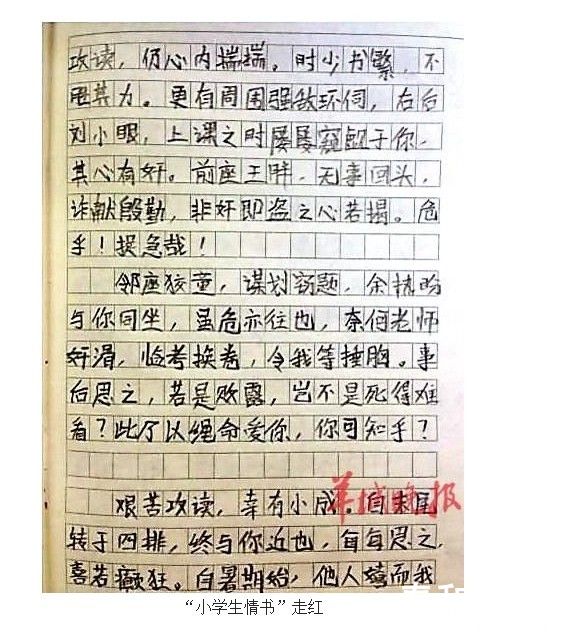 攻读，仍心内揣揣。时少书繁，不
甩其力。更有周围强敌环伺，右后
刘小眼，上课之时屡屡窥觎于你，
其心有奸。前座王胖，无事回头，
诈献殷勤，非奸即盗之心若揭。危
乎！捉急哉！
邻座狡童，谋划窃题，余
与你同坐，虽危亦往也，奈何老师
奸滑，临考换卷，令我等捶胸。事
后思之，若是败露，岂不是死得难
看？此乃以绳命爱你，你可知乎？
艰苦攻读，幸有小成，自末尾
羊城晚报
转于四排，终与你近也，每每思之，
喜若癫狂。自暑期始，他人嬉而我
“小学生情书”走红